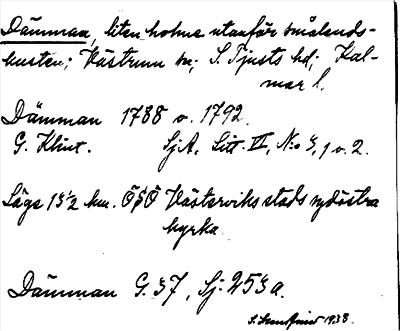 Dämman, liten holme utanför smålands-
kusten; Västrum sn; S. Tjusts hd; Kal-
mar l.
Dämman 1788 o. 1792.
G. Klint. SjA, Litt. II, N:o 3, 1 o. 2.
Läge 13 1/2 km. ÖSÖ Västerviks stads sydöstra
kyrka.
Dämman G. 37, Sj: 253a.
1938.